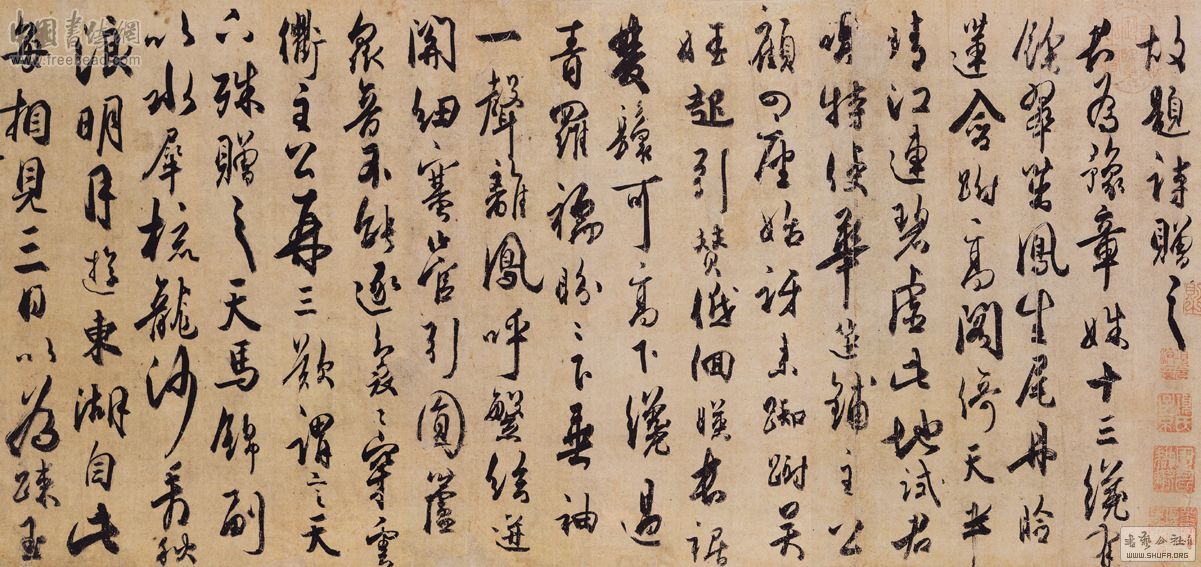 故題詩贈之
君為豫章姝十三纔有
餘翠茁鳳生尾丹臉
蓮含跗高閣倚天半
晴江連碧虛此地試君
唱特使華筵鋪主公
顧四座始訝來踟躕吳
娃起引贊低佪暎長裾
雙鬟可高下纔過
青羅襦盼〻下垂袖
一聲離鳳呼繁絃迸
關紐塞管引圓蘆
衆音不能逐裊〻穿雲
衢主公再三歎謂言天
下殊贈之天馬錦副
以水犀梳龍沙看秋
浪明月遊東湖自此
每相見三日以為踈玉
中国书法网
www.freehead.com
書法公社
WWW.SHUFA.ORG